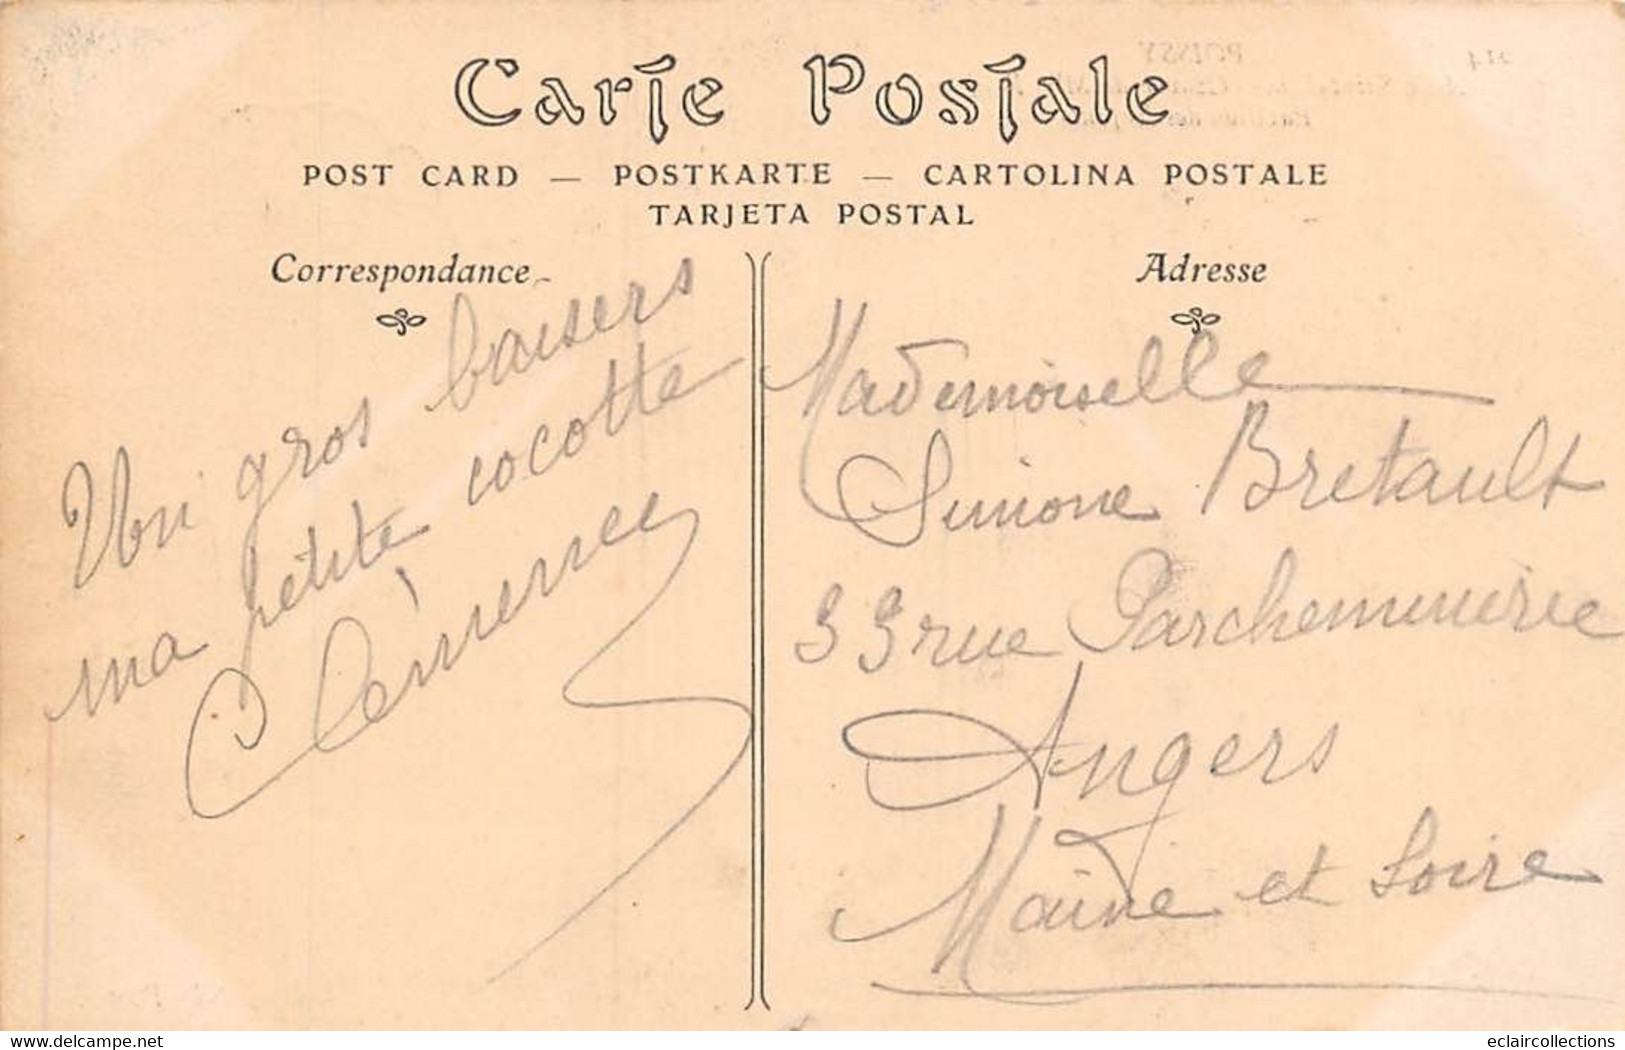 Carte Postale
POST CARD — POSTKARTE — CARTOLINA POSTALE
TARJETA POSTAL
Correspondance
Un gros baisers
ma petite cocotte
Clémence
Adresse
Mademoiselle
Simone Bretault
33 rue Parcheminerie
Angers
Maine et Loire
POISSY
214
www.delcampe.net
eclaircollections